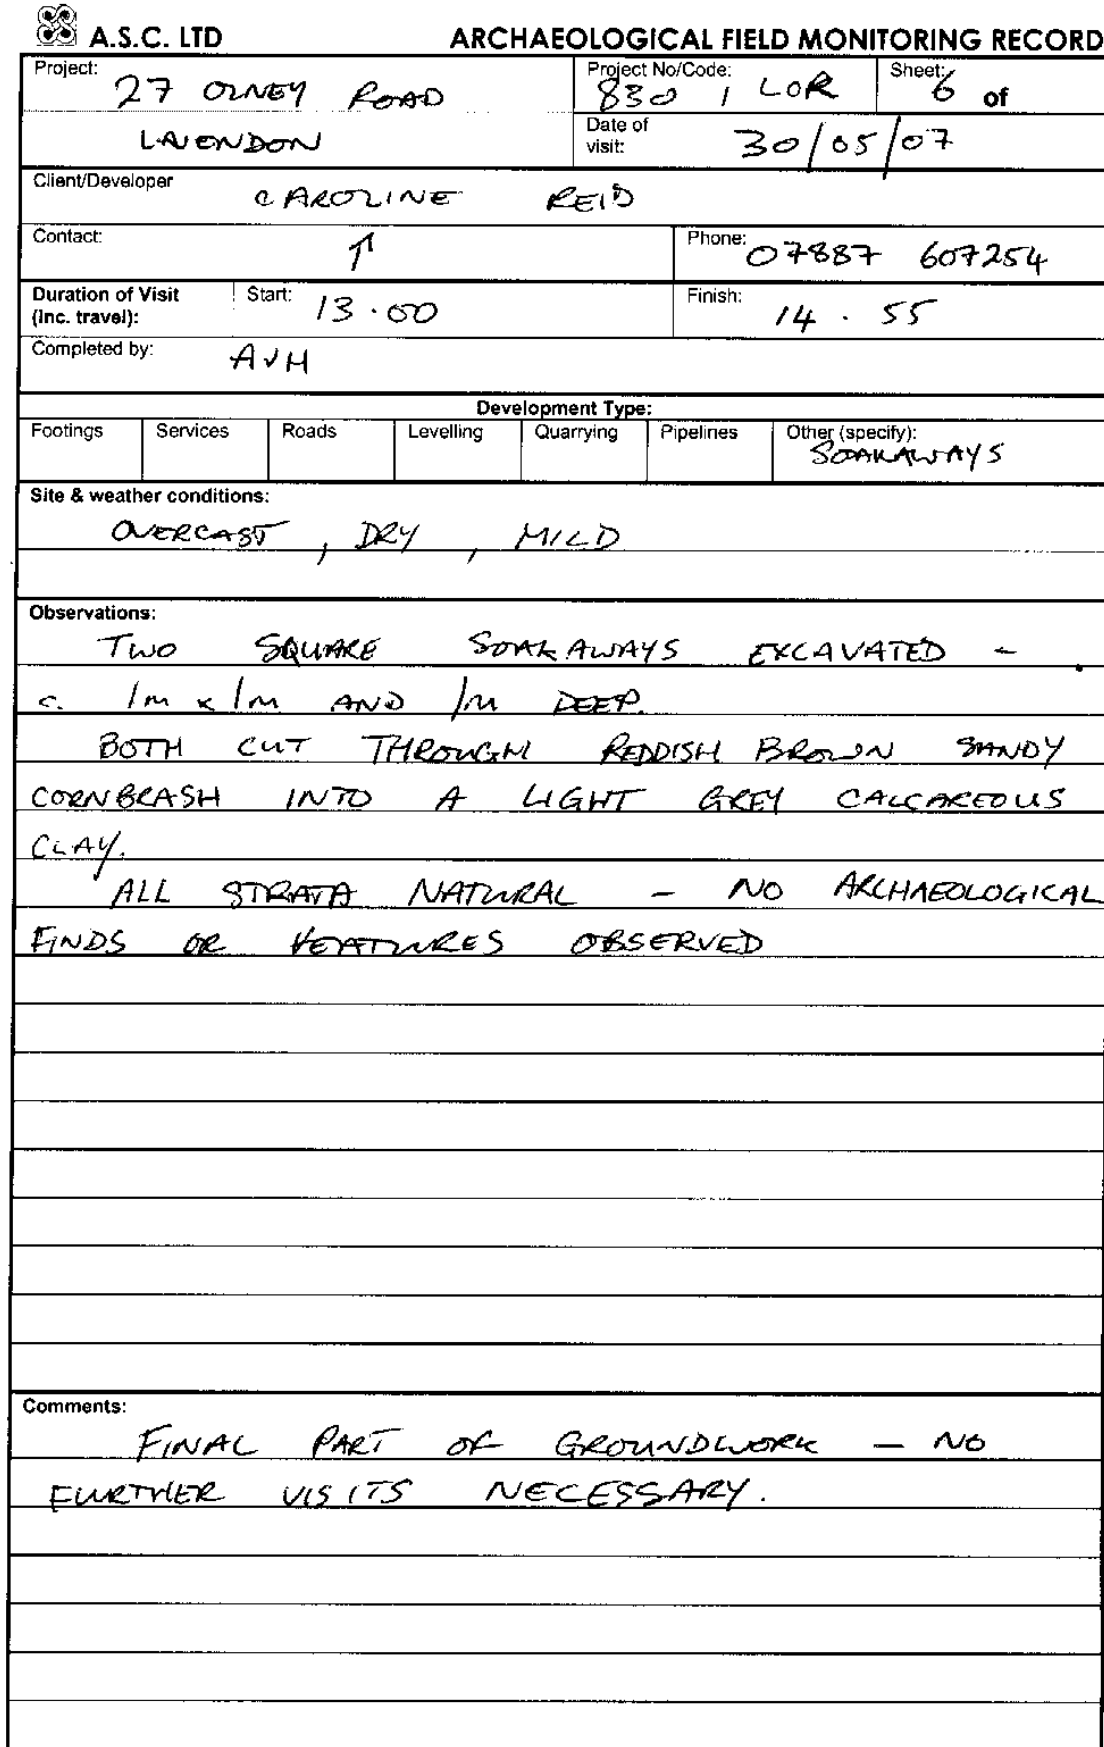 A.S.C. LTD ARCHAEOLOGICAL FIELD MONITORING RECORD
Project: 27 OLNEY ROAD
LAVENDON
Project No/Code: 830 / LOR
Sheet: 6 of
Date of visit: 30/05/07
Client/Developer CAROLINE REID
Contact: ↑
Phone: 07887 607254
Duration of Visit (inc. travel):
Start: 13.00
Finish: 14.55
Completed by: AJH
Development Type:
Footings Services Roads Levelling Quarrying Pipelines Other (specify):
SOAKAWAYS
Site & weather conditions:
OVERCAST, DRY, MILD
Observations:
TWO SQUARE SOAKAWAYS EXCAVATED -
c. 1m x 1m AND 1m DEEP.
BOTH CUT THROUGH REDDISH BROWN SANDY
CORNBRASH INTO A LIGHT GREY CALCAREOUS
CLAY.
ALL STRATA NATURAL - NO ARCHAEOLOGICAL
FINDS OR FEATURES OBSERVED
Comments:
FINAL PART OF GROUNDWORK - NO
FURTHER VISITS NECESSARY.